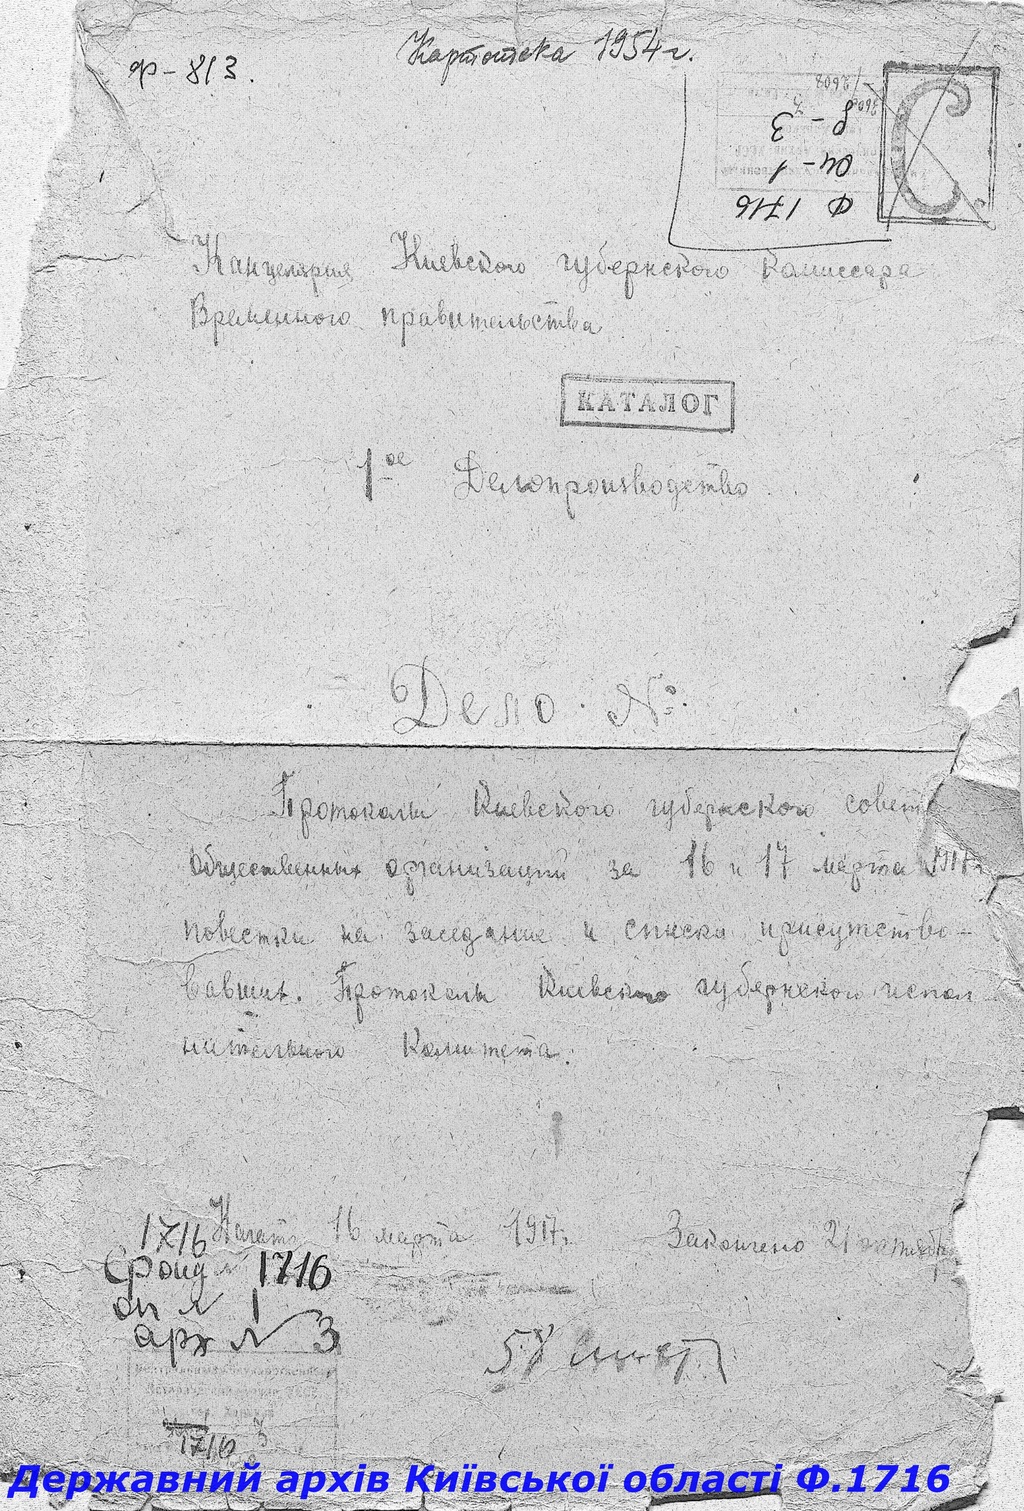 Картотека 1954 г.
Ф-813.
Ф 1716
оп-1
д-3
С
Канцелярия Киевского губернского Комиссара
Временного правительства
КАТАЛОГ
1ое Делопроизводство.
Дело №
Протоколы Киевского губернского совет
общественных организаций за 16 и 17 марта 1917 г.
повестки на заседание и списки присутство-
вавших. Протоколы Киевского губернского испол
нительного Комитета.
Начато 16 марта 1917 г. Закончено 21 октября
1716
Фонд № 1716
оп № 1
арх № 3
58 лист
1716 3
Державний архів Київської області Ф.1716